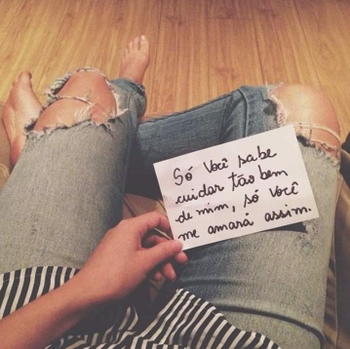 Só você sabe
cuidar tão bem
de mim, só você
me amará assim.